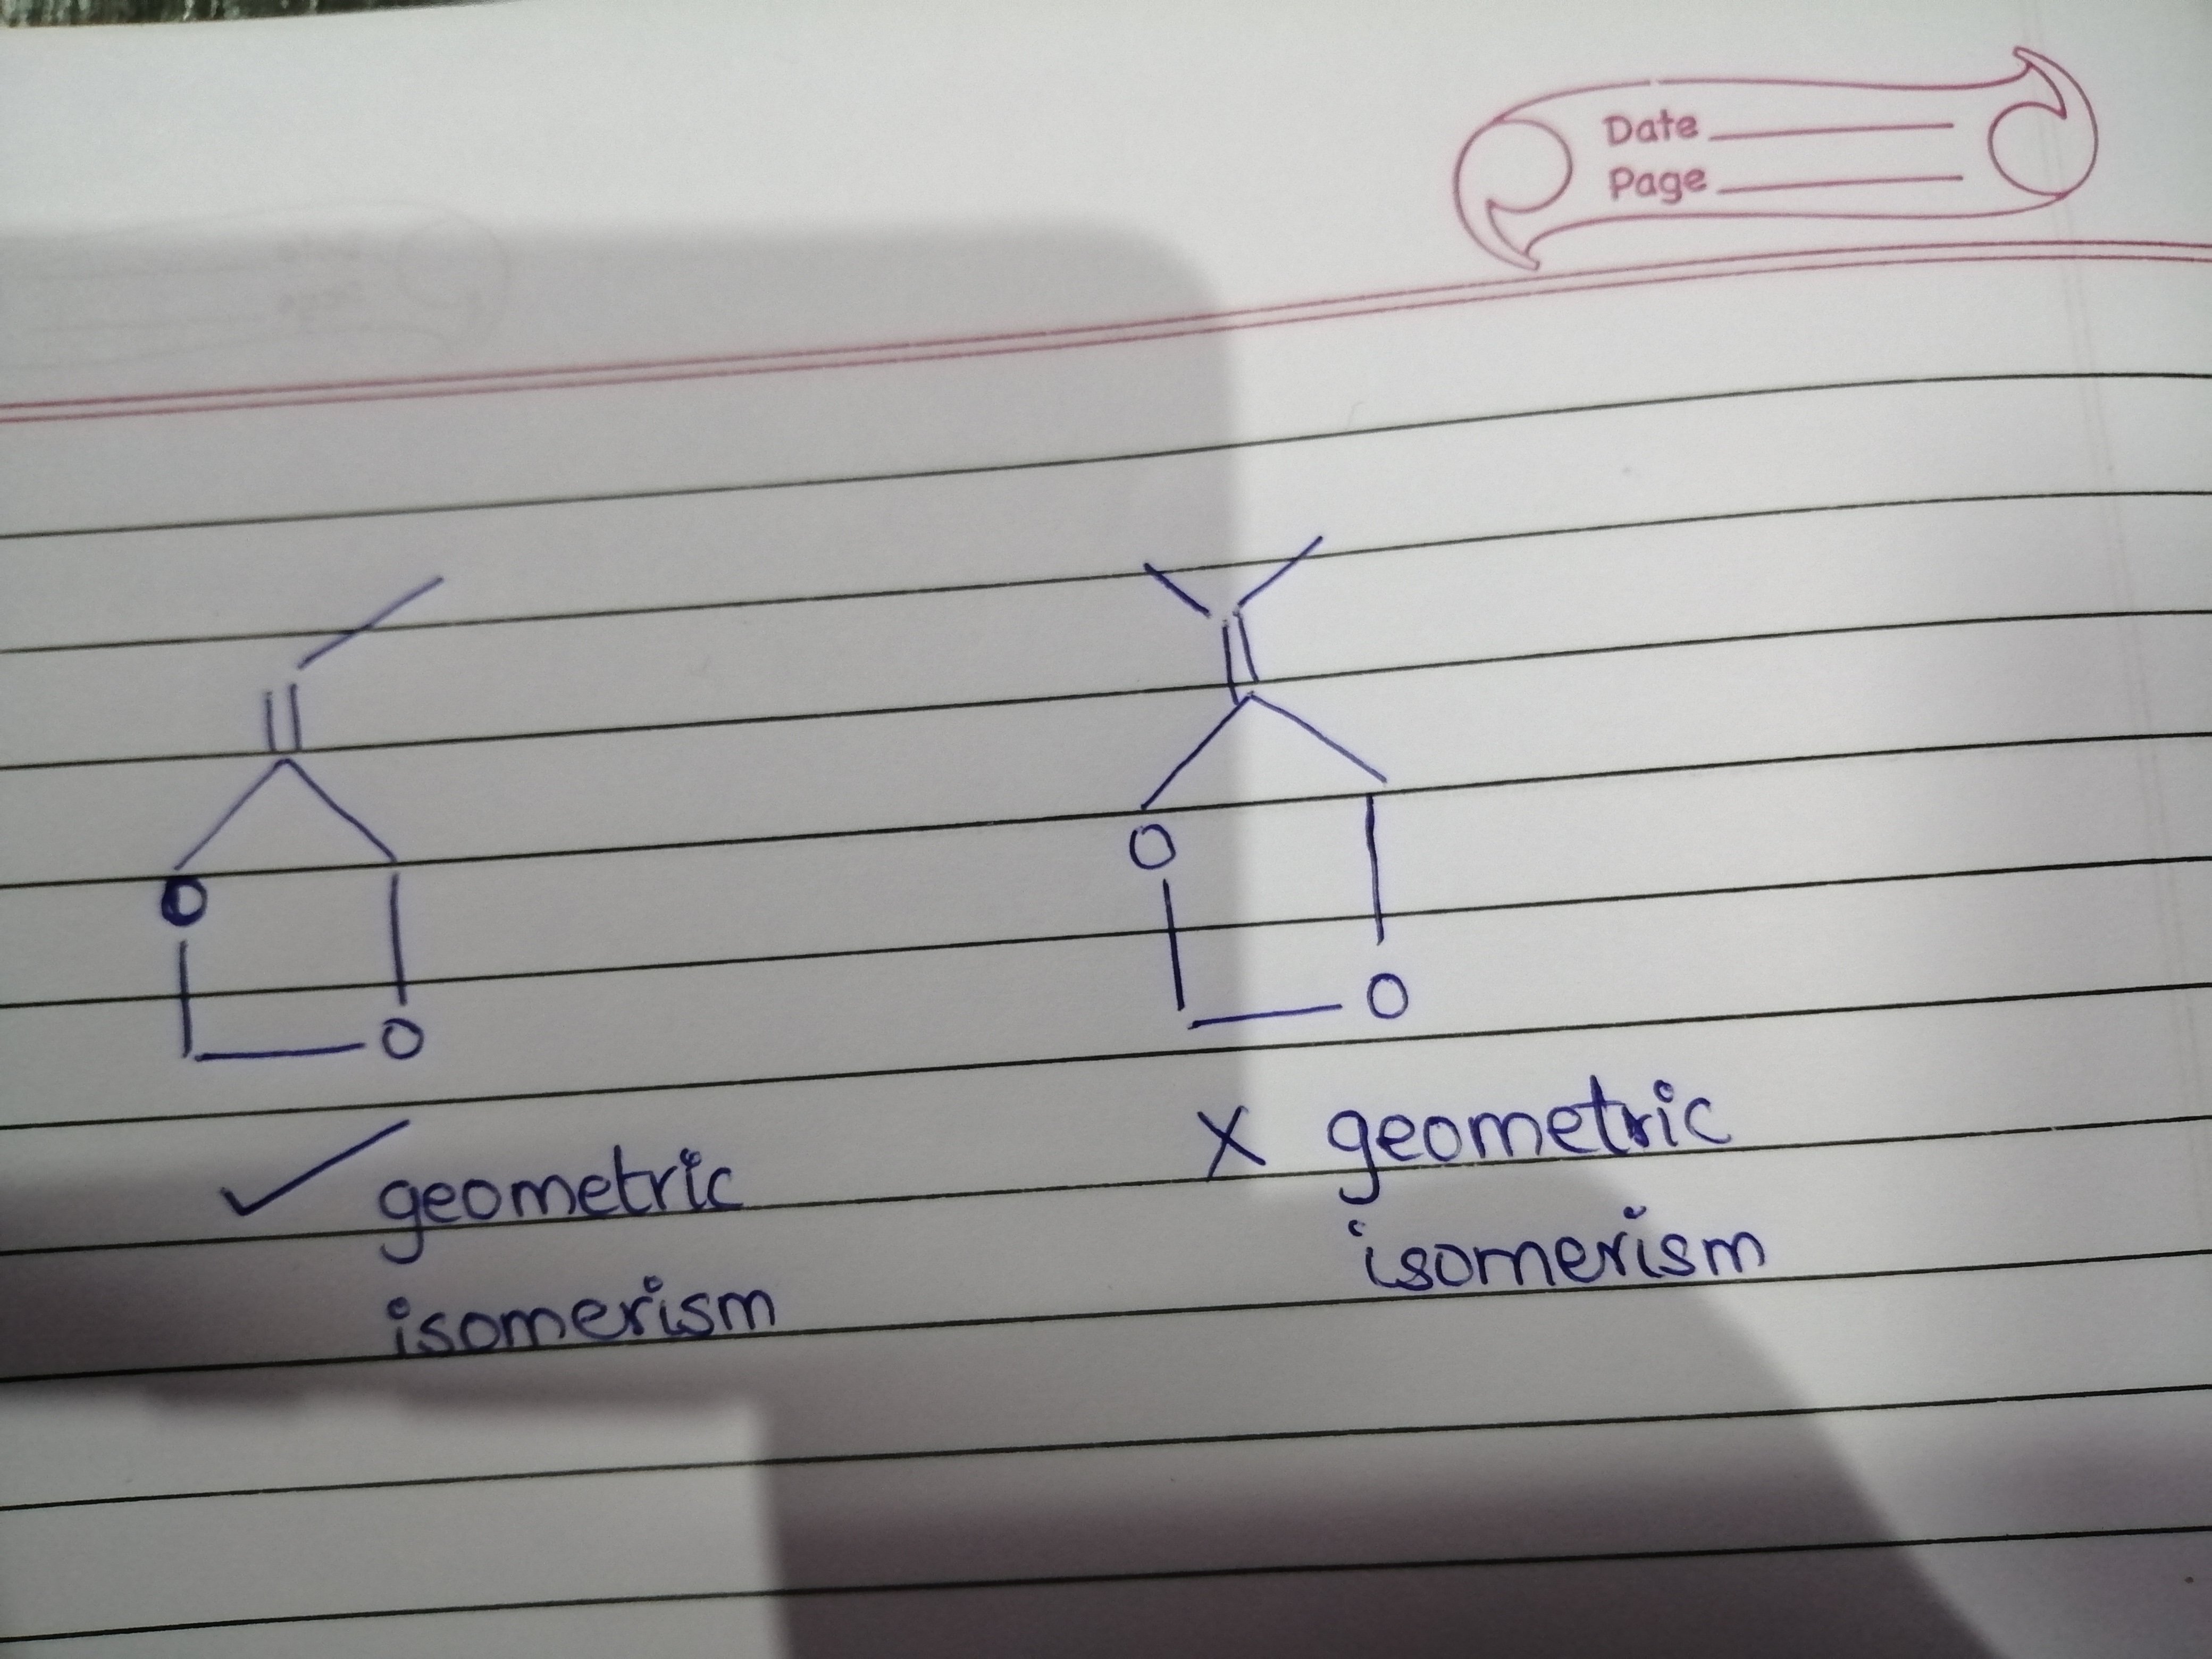 Date
Page
O
O
O
O
✓ geometric
isomerism
X geometric
isomerism